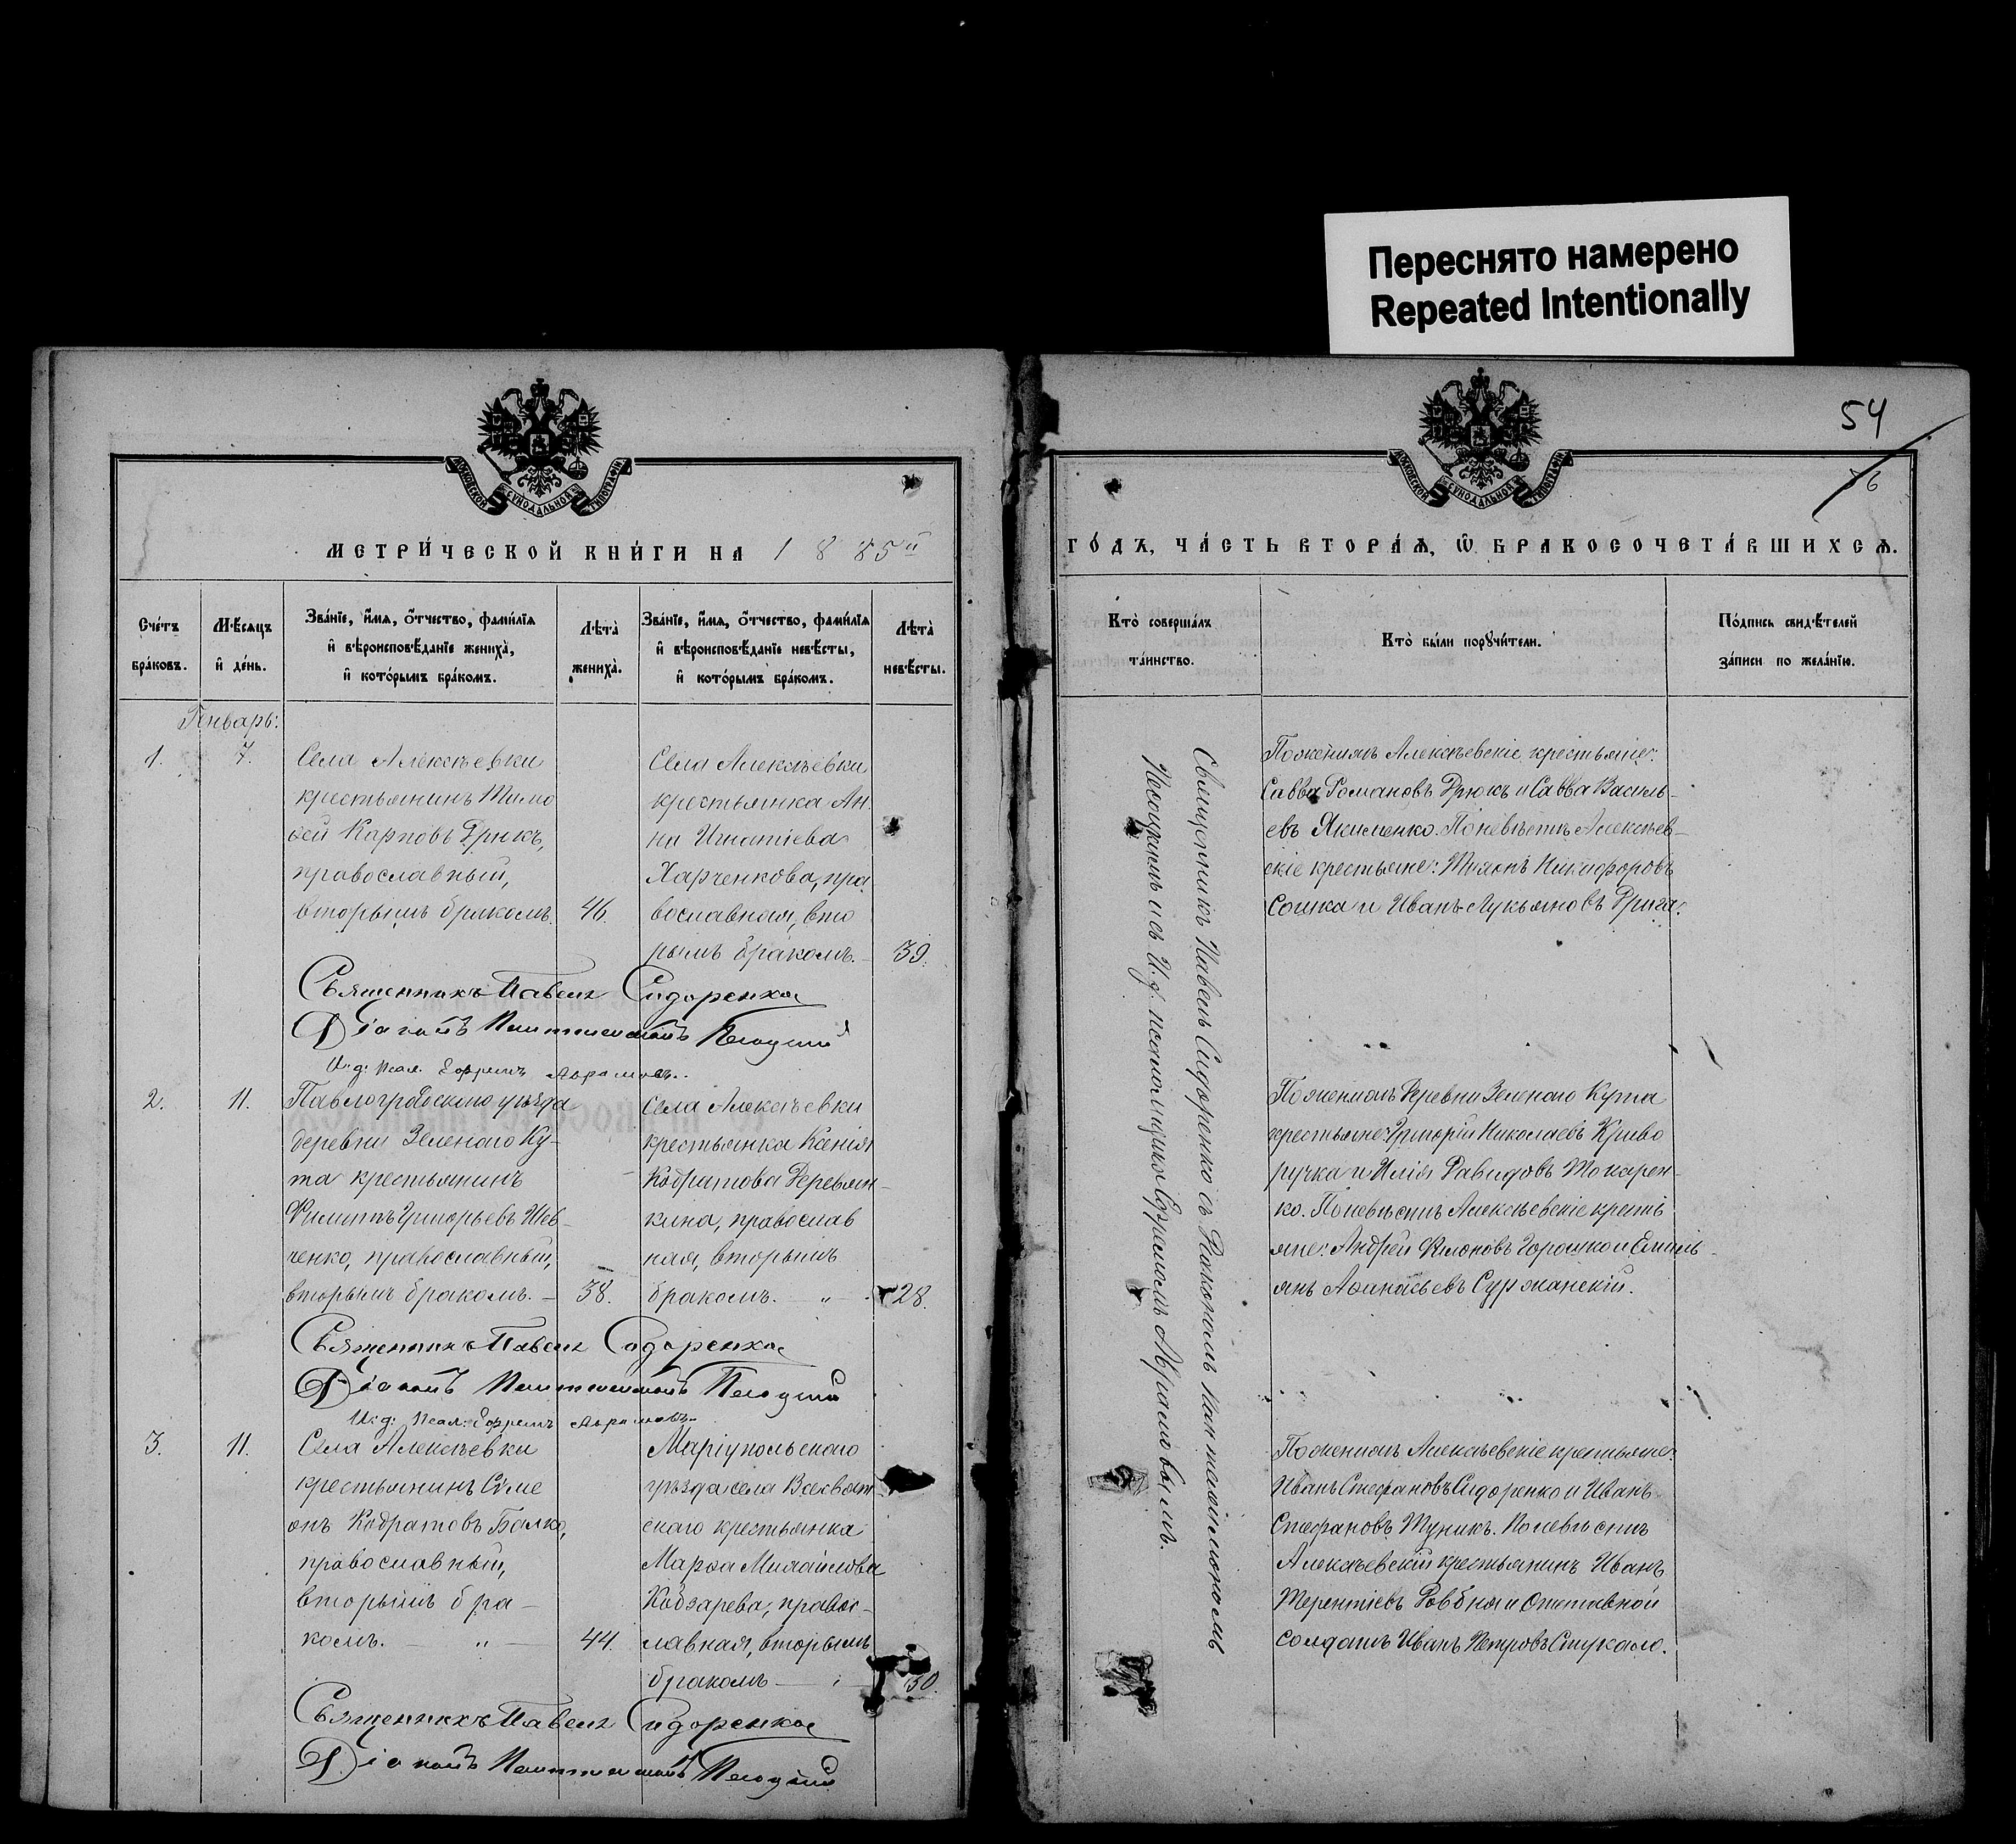 Переснято намерено
Repeated Intentionally
54
МОСКОВСКОЙ СѴНОДАЛЬНОЙ ТИПОГРАФІИ
МЕТРИ́ЧЕСКОЙ КНИ́ГИ НА 1885й
Сче́тъ бра́ковъ.
Мѣ́сяцъ и҆ де́нь.
Зва́нїе, и҆́мя, ѻ҆́тчество, фами́лїя
и҆ вѣроисповѣ́данїе жениха̀,
и҆ кото́рымъ бра́комъ.
Лѣта̀ жениха̀.
Зва́нїе, и҆́мя, ѻ҆́тчество, фами́лїя
и҆ вѣроисповѣ́данїе невѣ́сты,
и҆ кото́рымъ бра́комъ.
Лѣта̀ невѣ́сты.
Генварь:
1.
7.
Села Алексѣевки
крестьянинъ Тимо
ѳей Карповъ Дрюкъ,
православный,
вторымъ бракомъ.
46.
Села Алексѣевки
крестьянка Ан
на Игнатіева
Харченкова, пра
вославная, вто
рымъ бракомъ.
39.
Священникъ Павелъ Сидоренко
Діаконъ Пантелеимонъ
И. д. Псал. Ефремъ Абрамовъ.
2.
11.
Павлоградскаго уѣзда
деревни Зеленаго Ку-
та крестьянинъ
Филиппъ Григорьевъ Шев-
ченко, православный,
вторымъ бракомъ. –
38.
Села Алексѣевки
крестьянка Ксенія
Кодратова Деревян-
кина, православ
ная, вторымъ
бракомъ. – " –
28.
Священникъ Павелъ Сидоренко
Діаконъ Пантелеимонъ
И. д. Псал. Ефремъ Абрамовъ.
3.
11.
Села Алексѣевки
крестьянинъ Симе
онъ Кодратовъ Балко,
православный,
вторымъ бра–
комъ. – " –
44.
Маріупольскаго
уѣзда села
скаго крестьянка
Марѳа Михайлова
Кобзарева, правос-
лавная, вторымъ
бракомъ –
30.
Священникъ Павелъ Сидоренко
Діаконъ Пантелеимонъ
ГО́ДЪ, ЧА́СТЬ ВТОРА́Ѧ, Ѡ҆ БРАКОСОЧЕТА́ВШИХСѦ.
Кто̀ соверша́лъ та́инство.
Кто̀ бы́ли порꙋчи́тели.
По́дпись свидѣ́телей
за́писи по жела́нїю.
Священникъ Павелъ Сидоренко съ Діакономъ Пантелеимономъ
и съ И. д. псаломщика Ефремомъ Абрамовымъ.
По женихѣ Алексѣевскіе крестьяне:
Савва Романовъ Дрюкъ и Савва Василь–
евъ Якименко. По невѣстѣ Алексѣев–
скіе крестьяне: Никифоровъ
Сошка и Иванъ Лукьяновъ Дрига.
По женихѣ деревни Зеленаго Кута
крестьяне: Григорій Николаевъ Криво
ручка и Илія Давидовъ Токарен–
ко. По невѣстѣ Алексѣевскіе кресть
яне: Андрей Горошко и Емель
янъ Аѳанасьевъ Суржанскій.
По женихѣ Алексѣевскіе крестьяне:
Иванъ Стефановъ Сидоренко и Иванъ
Стефановъ Туникъ. По невѣстѣ
Алексѣевскій крестьянинъ Иванъ
Терентіевъ и отставной
солдатъ Иванъ Петровъ Стукало.